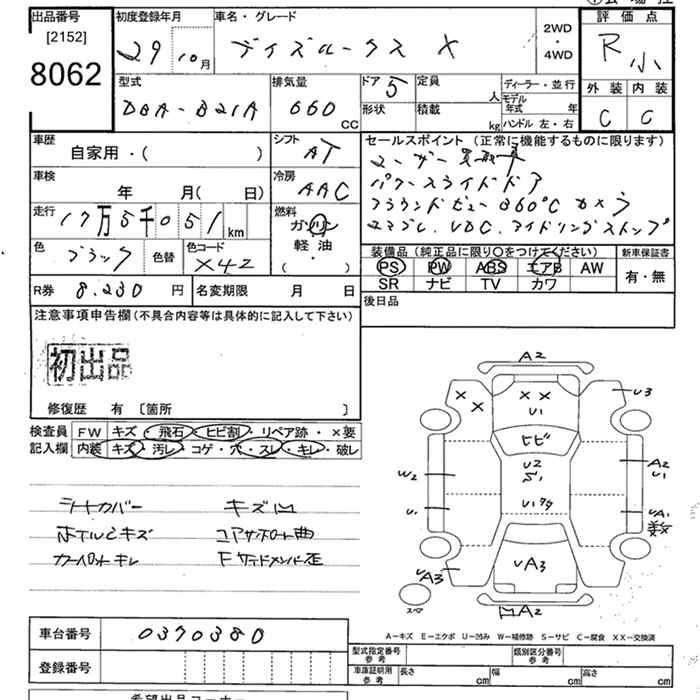 出品番号 初度登録年月 車名・グレード 評価点
[2152] 29 10月 デイズルークス X 2WD・4WD R 小
8062
型式 排気量 ドア 5 定員 人 ディーラー・並行 外装 内装
DBA-B21A 660CC 形状 積載 kg モデル年式 年 ハンドル 左・右 C C
車歴 シフト セールスポイント (正常に機能するものに限ります)
自家用・( ) AT ユーザー買取車
車検 年 月( 日) 冷房 AAC パワースライドドア
走行 17万5千051km 燃料 ガソリン 軽油・( ) アラウンドビュー360°Cカメラ
エマブレ.VDC.アイドリングストップ
色 ブラック 色替 色コード X42 装備品(純正品に限り○をつけてください) 新車保証書
PS PW ABS エアB AW 有・無
R券 8.230円 名変期限 月 日 SR ナビ TV カワ
後日品
注意事項申告欄(不具合内容等は具体的に記入して下さい)
初出品
修復歴 有 〔箇所 〕
検査員 FW キズ・飛石・ヒビ割・リペア跡・×要
記入欄 内装 キズ・汚レ・コゲ・穴・スレ・キレ・破レ
A2
X X X X U1 U3
ヒビ
W2 U2 S1 A2 U1
U1 U1タタ UA1 数
シートカバー キズ凹
ホイルCキズ コアサポート曲
カーペットキレ Fサイドメンバー歪
UA3 UA3
スペア 凹A2
車台番号 0370380 A-キズ E-エクボ U-凹み W-補修跡 S-サビ C-腐食 XX-交換済
登録番号 型式指定番号 参考 類別区分番号 参考
車庫証明用 参考 長さ cm 幅 cm 高さ cm
希望出品コーナー